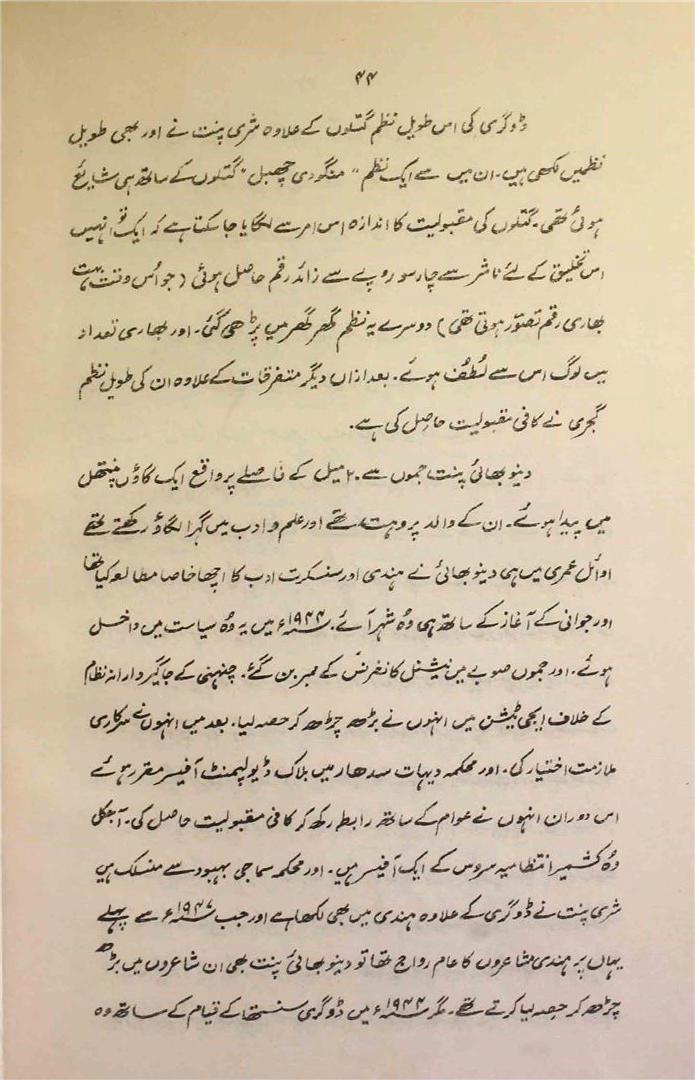 ۴۴
ڈوگری کی اس طویل نظم گتلوں کے علاوہ شری پنت نے اور بھی طویل
نظمیں لکھی ہیں۔ ان میں سے ایک نظم " منگودی چھبل " گتلوں کے ساتھ ہی شایع
ہوئی تھی۔ گتلوں کی مقبولیت کا اندازہ اس امر سے لگایا جا سکتا ہے کہ ایک تو انہیں
اس تخلیق کے لئے ناشر سے چار سو روپے سے زائد رقم حاصل ہوئی (جو اُس وقت بہت
بھاری رقم تصوّر ہوتی تھی) دوسرے یہ نظم گھر گھر میں پڑھی گئی۔ اور بھاری تعداد
میں لوگ اس سے لُطف ہوئے۔ بعد ازاں دیگر متفرقات کے علاوہ ان کی طویل نظم
گجری نے کافی مقبولیت حاصِل کی ہے۔
دینو بھائی پنت جموں سے ۲۰ میل کے فاصلے پر واقع ایک گاؤں پنتھل
میں پیدا ہوئے۔ ان کے والد پروہت تھے اور علم و ادب میں گہرا لگاؤ رکھتے تھے
اوائل عمری میں ہی دینو بھائی نے ہندی اور سنسکرت ادب کا اچھا خاصا مطالعہ کیا تھا
اور جوانی کے آغاز کے ساتھ ہی وُہ شہر آئے۔ ۱۹۴۴ء میں یہ وُہ سیاست میں داخل
ہوئے۔ اور جموں صوبے میں نیشنل کانفرنس کے ممبر بن گئے۔ چنہنی کے جاگیردارانہ نظام
کے خلاف ایجی ٹیشن میں انہوں نے بڑھ چڑھ کر حصہ لیا۔ بعد میں انہوں نے سرکاری
ملازمت اختیار کی۔ اور محکمہ دیہات سدھار میں بلاک ڈیولپمنٹ آفیسر مقرر ہوئے
اس دوران انہوں نے عوام کے ساتھ رابطہ رکھ کر کافی مقبولیت حاصل کی۔ آجکل
وُہ کشمیر انتظامیہ سروس کے ایک آفیسر ہیں۔ اور محکمہ سماجی بہبود سے منسلک ہیں
شری پنت نے ڈوگری کے علاوہ ہندی میں بھی لکھا ہے اور جب ۱۹۴۷ء سے پہلے
یہاں پر ہندی مشاعروں کا عام رواج تھا تو دینو بھائی پنت بھی ان مشاعروں میں بڑھ
چڑھ کر حِصہ لیا کرتے تھے۔ مگر ۱۹۴۴ء میں ڈوگری سنستھا کے قیام کے ساتھ وہ